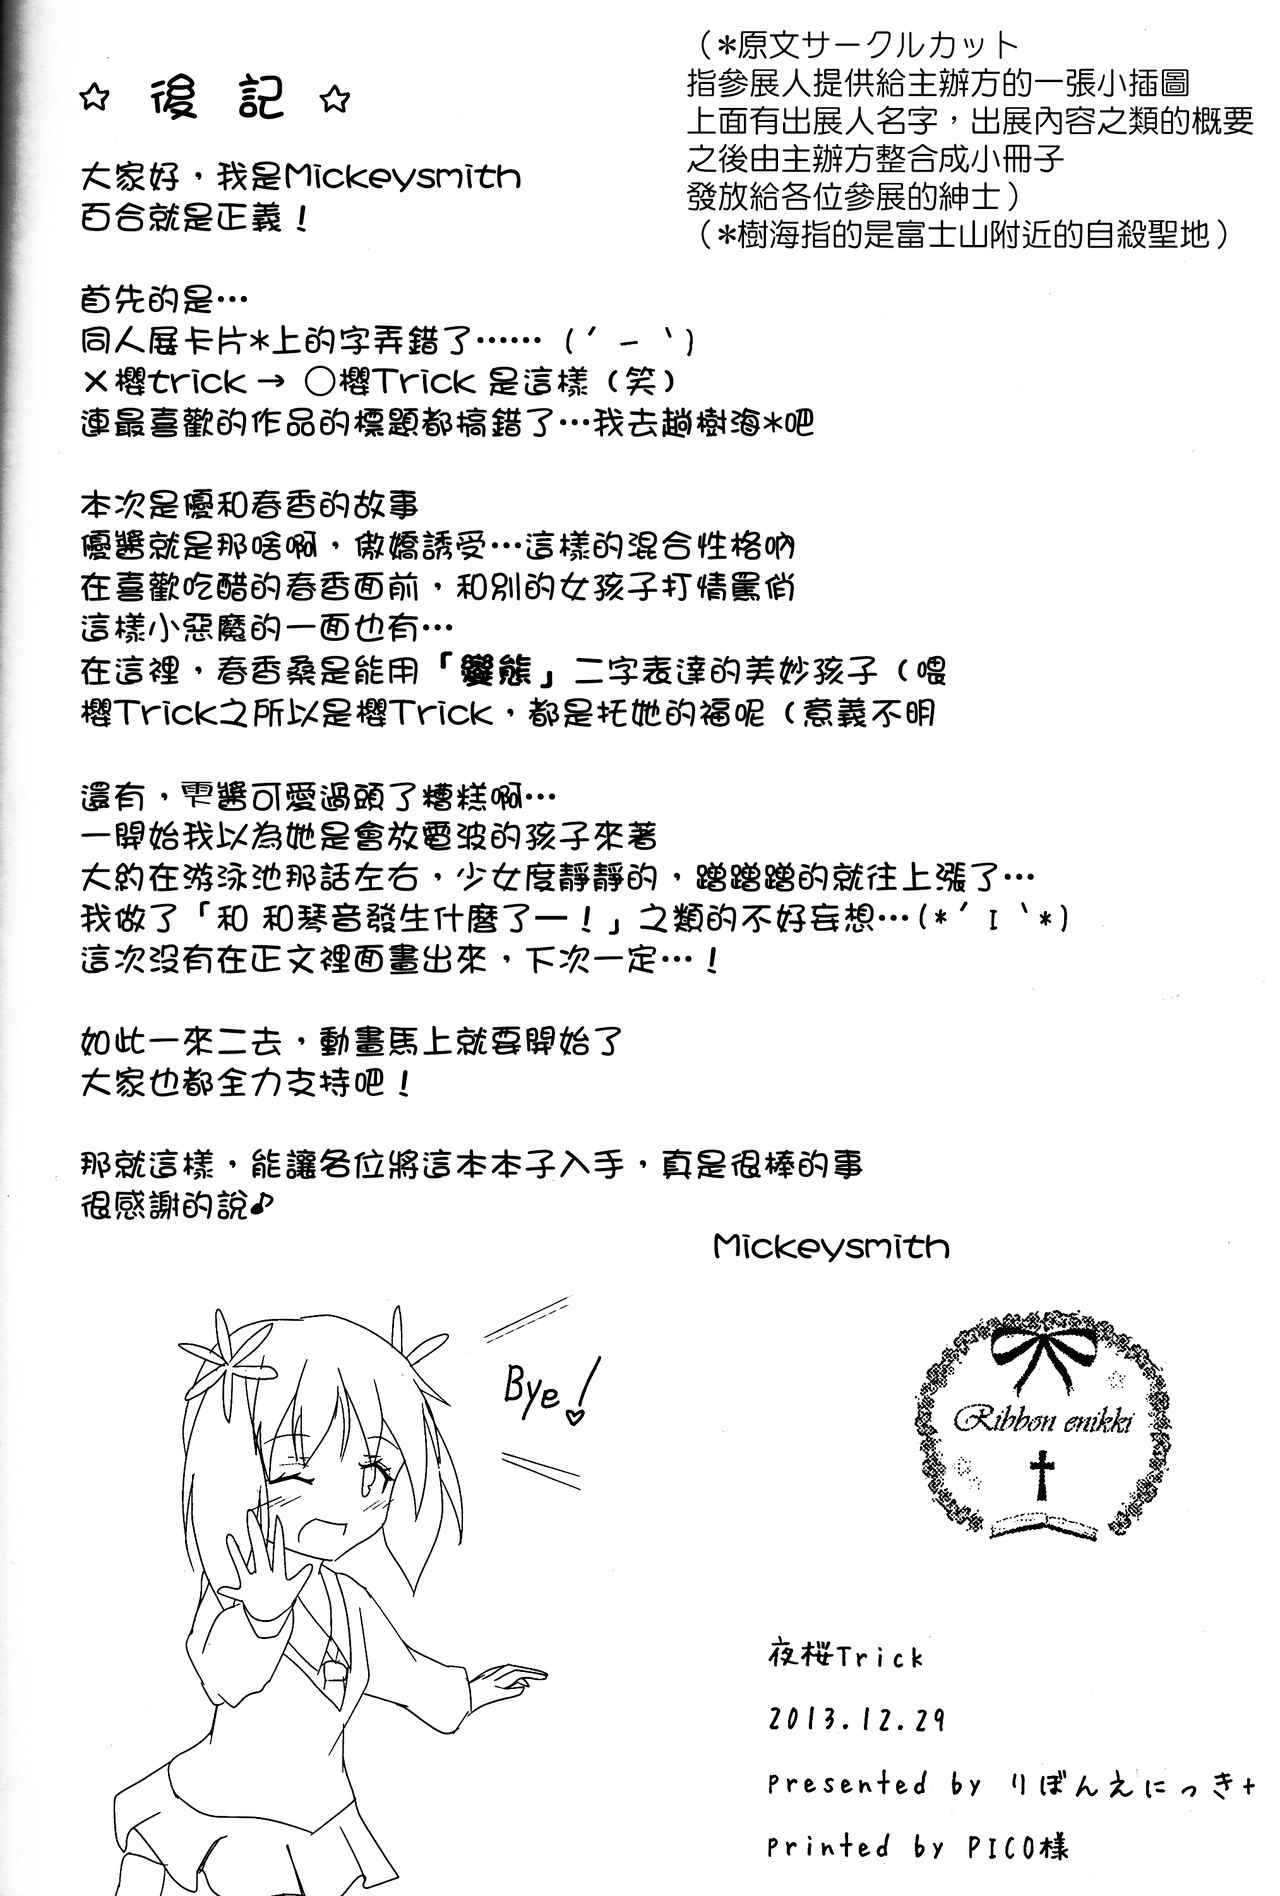 ☆ 後 記 ☆
(*原文サークルカット
指參展人提供給主辦方的一張小插圖
上面有出展人名字，出展內容之類的概要
之後由主辦方整合成小冊子
發放給各位參展的紳士)
(*樹海指的是富士山附近的自殺聖地)
大家好，我是Mickeysmith
百合就是正義！
首先的是…
同人展卡片*上的字弄錯了……（´－｀）
×櫻trick→ ○櫻Trick 是這樣（笑）
連最喜歡的作品的標題都搞錯了…我去趟樹海*吧
本次是優和春香的故事
優醬就是那啥啊，傲嬌誘受…這樣的混合性格吶
在喜歡吃醋的春香面前，和別的女孩子打情罵俏
這樣小惡魔的一面也有…
在這裡，春香桑是能用「變態」二字表達的美妙孩子（喂
櫻Trick之所以是櫻Trick，都是托她的福呢（意義不明
還有，雫醬可愛過頭了糟糕啊…
一開始我以為她是會放電波的孩子來著
大約在游泳池那話左右，少女度靜靜的，蹭蹭蹭的就往上漲了…
我做了「和 和琴音發生什麼了一！」之類的不好妄想…(*´I｀*)
這次沒有在正文裡面畫出來，下次一定…！
如此一來二去，動畫馬上就要開始了
大家也都全力支持吧！
那就這樣，能讓各位將這本本子入手，真是很棒的事
很感謝的說♪
Mickeysmith
Bye!
Ribbon enikki
夜桜Trick
2013.12.29
presented by りぼんえにっき+
printed by PICO様